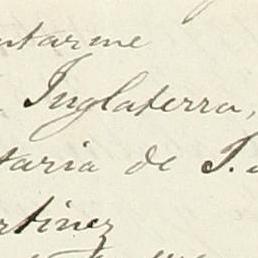 ntarme
Inglaterra,
taria de S.
rtinez